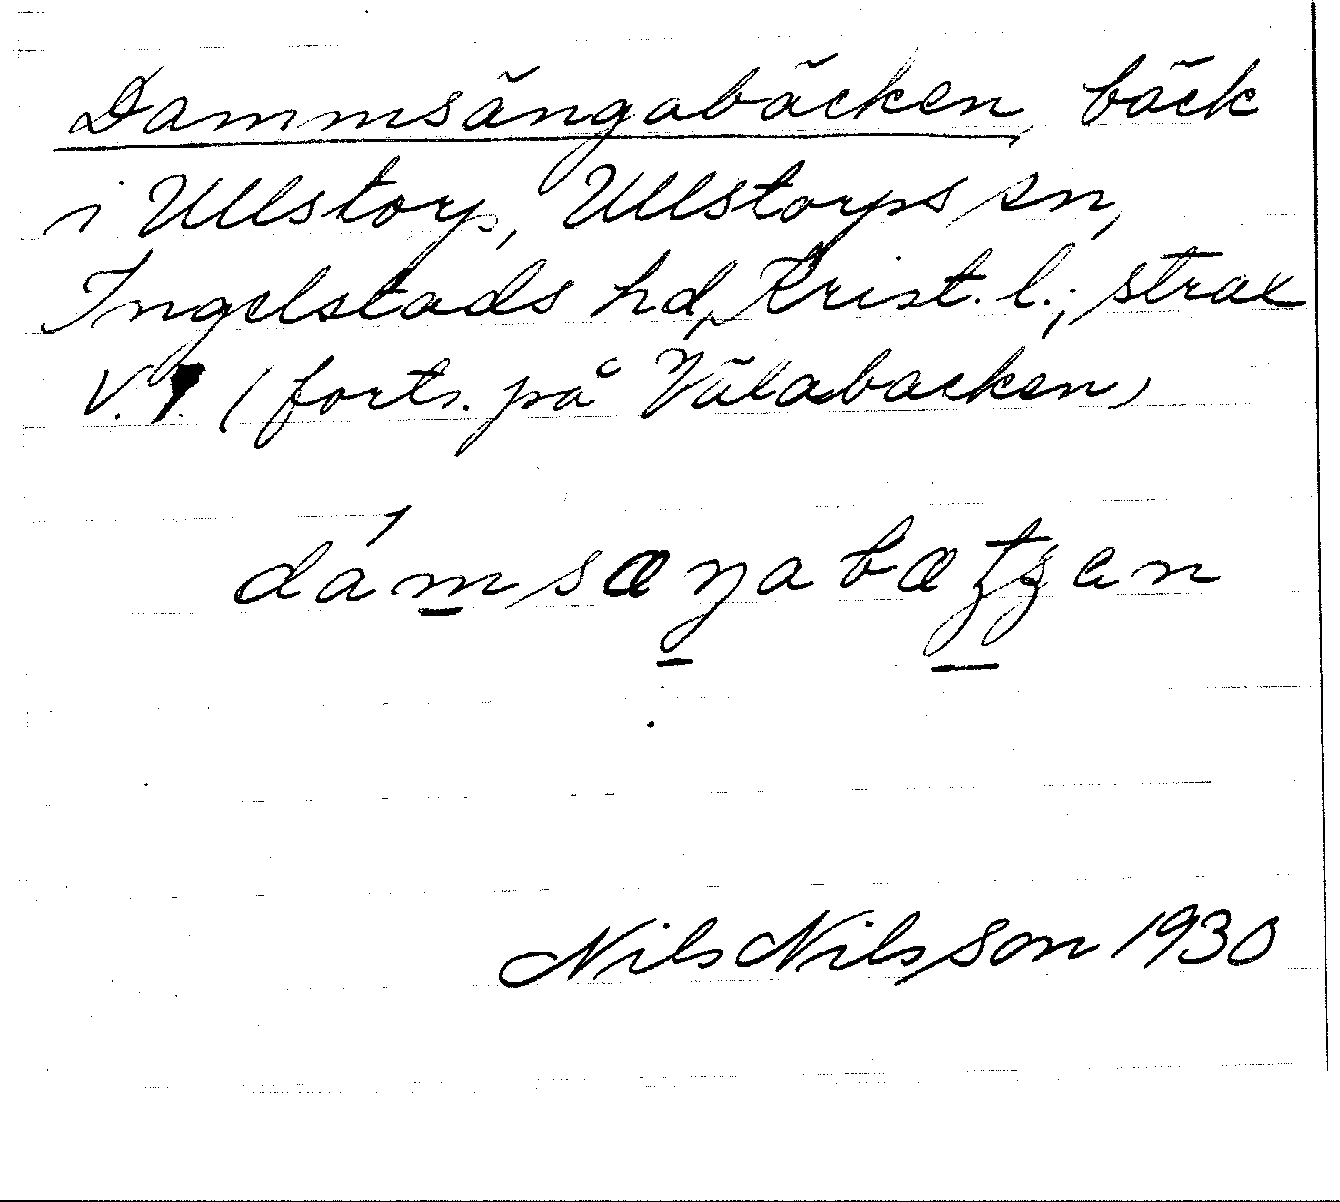 Dammsängabäcken, bäck
i Ullstorp, Ullstorps sn,
Ingelstads hd, Krist. l.; strax
V. (forts. på Välabacken)
dámsæŋabætʒʒen
Nils Nilsson 1930